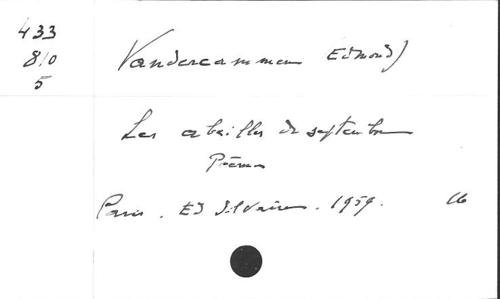 433
810
5
Vandercammen Edmond)
Les abeilles de septembre
Poèmes
Paris. Ed Silvaire. 1959. 16